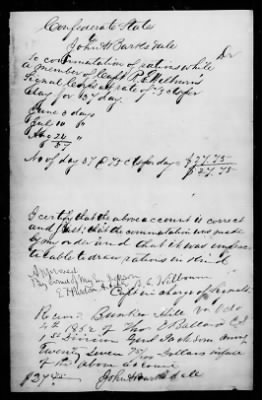 Confederate States
To John H Barksdale Dr
To commutation of rations while
a member of Capt R. E. Wilbourn's
Signal Corps at rate of 75 cts per
day for 37 day.
June 3 days
July 10 "
Aug 24 "
37
No of day 37 @ 75 cts per day = $27.75
$27.75
I certify that the above account is correct
and just; that the commutation was made
by my order and that it was imprac-
ticable to draw rations in kind
Approved
By Command of Maj Gen Jackson
R. E. Wilbourn
Capt in charge of Signals
Recd Bunker Hill Va Oct
4th 1862 of Thos E Ballard
1st Division Genl Jackson army
Twenty Seven 75/100 Dollars in full
of the above account
$27 75/100 John H Barksdale